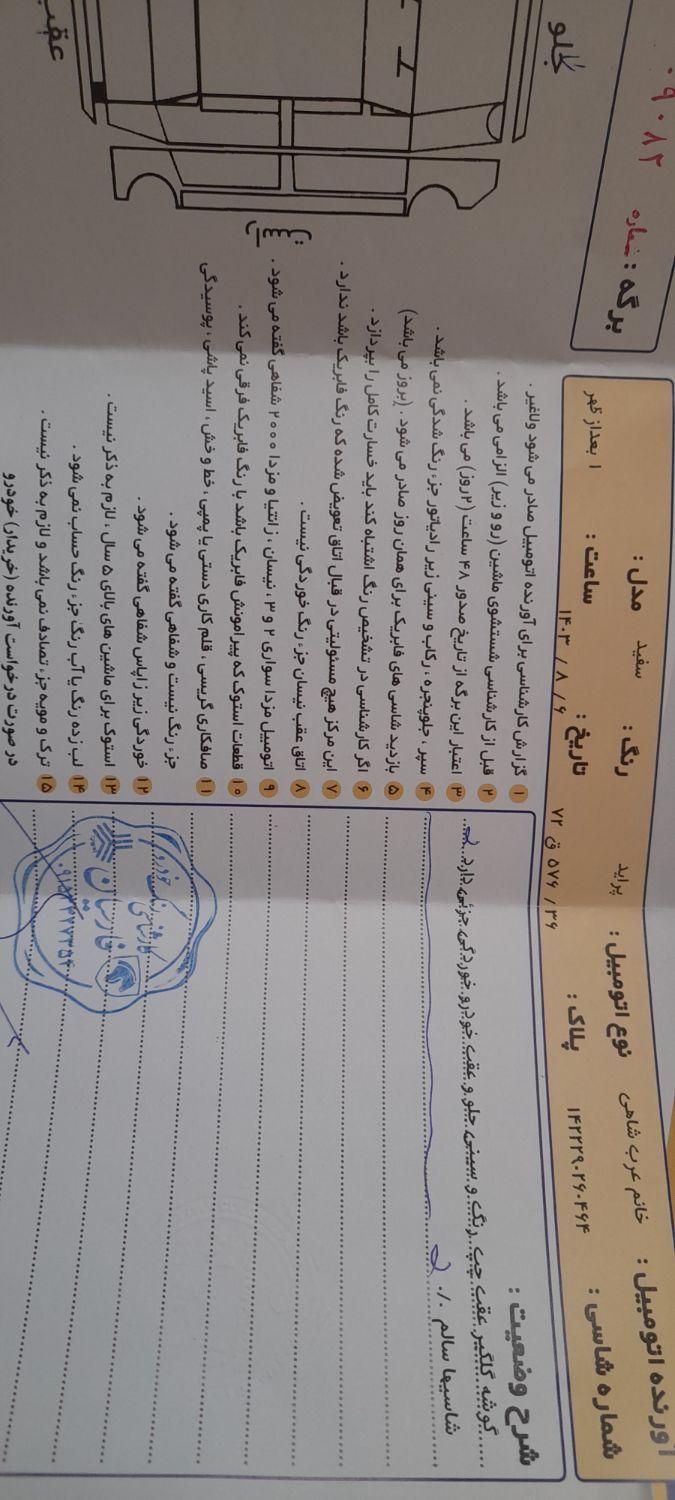 برگه : شماره ۰۹۰۸۲
آورنده اتومبیل : خانم عرب شاهی
نوع اتومبیل : پراید
رنگ : سفید
مدل :
شماره شاسی : ۱۴۲۲۲۹۰۲۶۰۴۶۴
پلاک : ۵۷۶ / ۳۶ ق ۷۲
تاریخ : ۱۴۰۳ / ۸ / ۶
ساعت : ۱ بعداز ظهر
جلو
عقب
شرح وضعیت :
گوشه گلگیر عقب چپ رنگ و سینی جلو و عقب خودرو خوردگی جزئی دارد
شاسیها سالم ./.
۱ گزارش کارشناسی برای آورنده اتومبیل صادر می شود ولاغیر .
۲ قبل از کارشناسی شستشوی ماشین (رو و زیر) الزامی می باشد .
۳ اعتبار این برگه از تاریخ صدور ۴۸ ساعت (۲روز) می باشد .
۴ سپر ، جلوپنجره ، رکاب و سینی زیر رادیاتور جزء رنگ شدگی نمی باشد .
۵ بازدید شاسی های فابریک برای همان روز صادر می شود . (بروز می باشد)
۶ اگر کارشناسی در تشخیص رنگ اشتباه کند باید خسارت کامل را بپردازد .
۷ این مرکز هیچ مسئولیتی در قبال اتاق تعویض شده که رنگ فابریک باشد ندارد .
۸ اتاق عقب نیسان جزء رنگ خوردگی نیست .
۹ اتومبیل مزدا سواری ۲ و ۳ ، نیسان ، زانتیا و مزدا ۲۰۰۰ شفاهی گفته می شود .
۱۰ قطعات استوک که پیرامونش فابریک باشد با رنگ فابریک فرقی نمی کند .
۱۱ صافکاری گریسی ، قلم کاری دستی یا پمپی ، خط و خش ، اسید پاشی ، پوسیدگی
جزء رنگ نیست و شفاهی گفته می شود .
۱۲ خوردگی زیر زاپاس شفاهی گفته می شود .
۱۳ استوک برای ماشین های بالای ۵ سال ، لازم به ذکر نیست .
۱۴ لب زده رنگ یا آب رنگ جزء رنگ حساب نمی شود .
۱۵ ترک و مویه جزء تصادف نمی باشد و لازم به ذکر نیست .
در صورت درخواست آورنده (خریدار) خودرو
کارشناسی رنگ خودرو
فارسیان